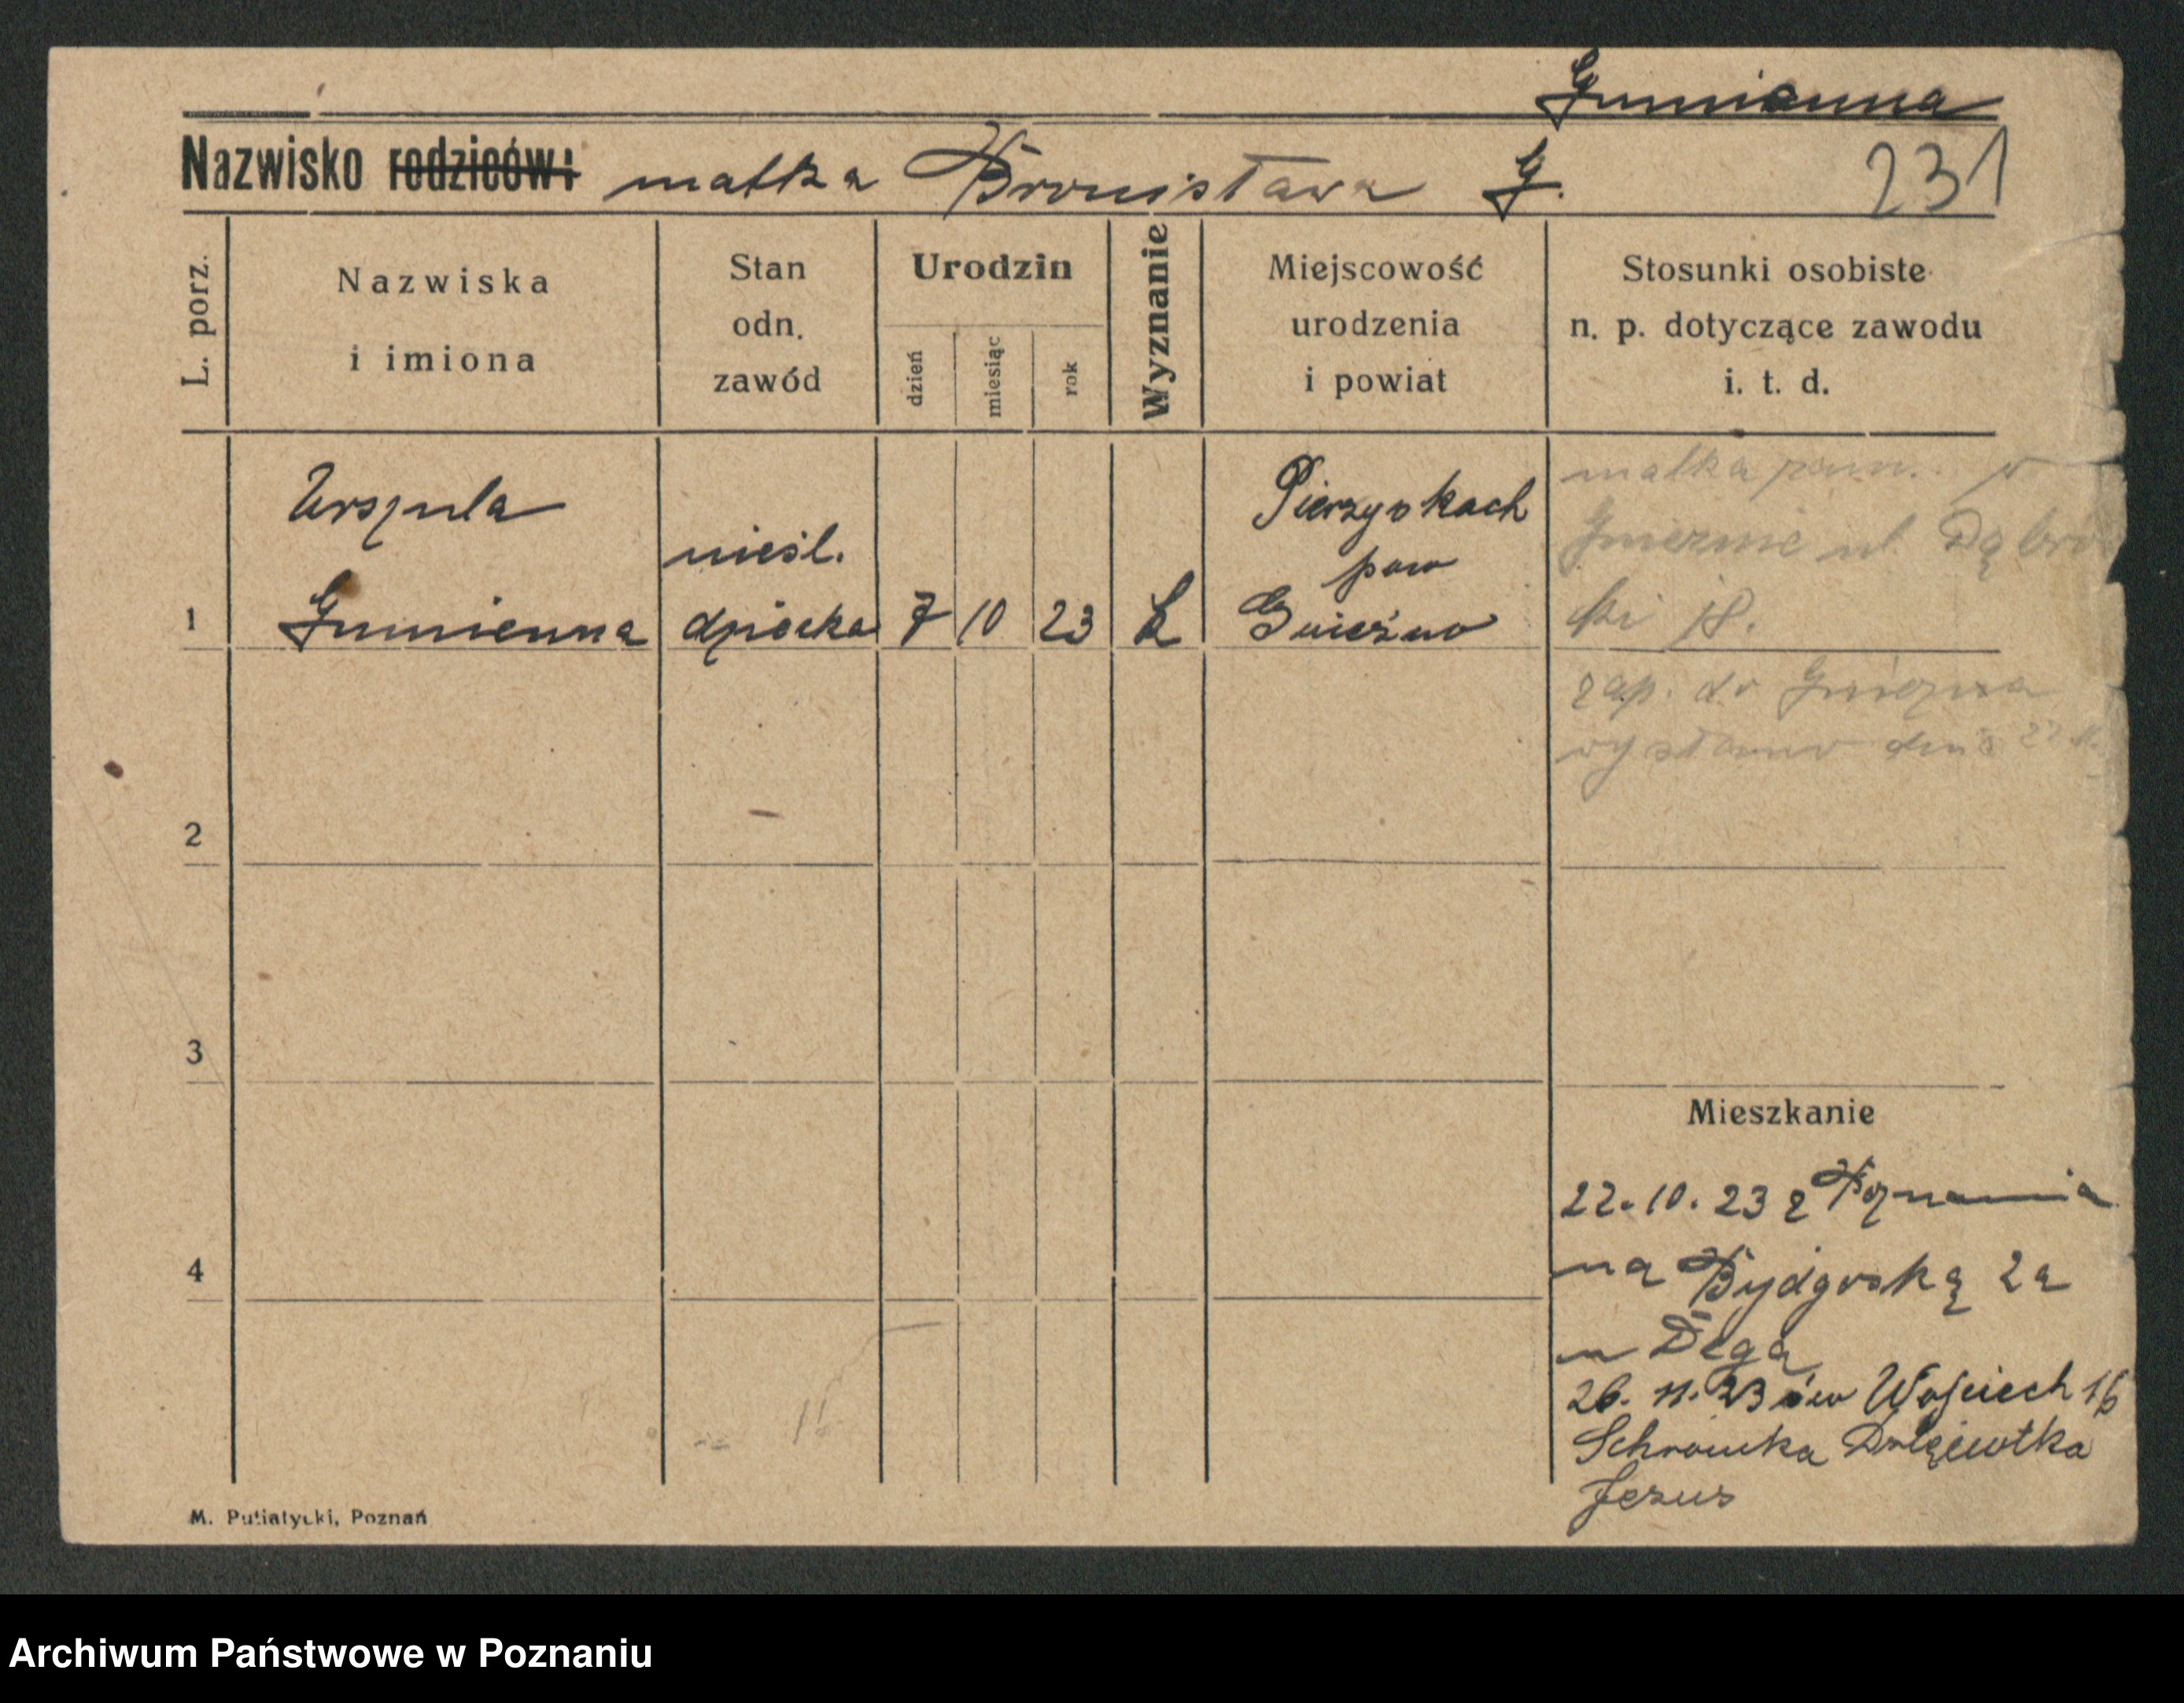 Gumienna
Nazwisko rodziców: matka Bronisława G.
231
L. porz.
Nazwiska
i imiona
Stan
odn.
zawód
Urodzin
dzień
miesiąc
rok
Wyznanie
Miejscowość
urodzenia
i powiat
Stosunki osobiste
n. p. dotyczące zawodu
i. t. d.
1
Urszula
Gumienna
nieśl.
dziecka
7
10
23
k
Pierzyskach
pow
Gnieźno
matka zam. w
Gnieznie ul. Dąbrow
ski 18.
zap. do Gniezna
wysłano dnia 22
2
3
4
Mieszkanie
22.10.23 z Poznania
na Bydgoską 2a
u Degą
26. 11. 23 św Wojciech 16
Schroniska Dzieciątka
Jezus
M. Putiatycki, Poznań
Archiwum Państwowe w Poznaniu